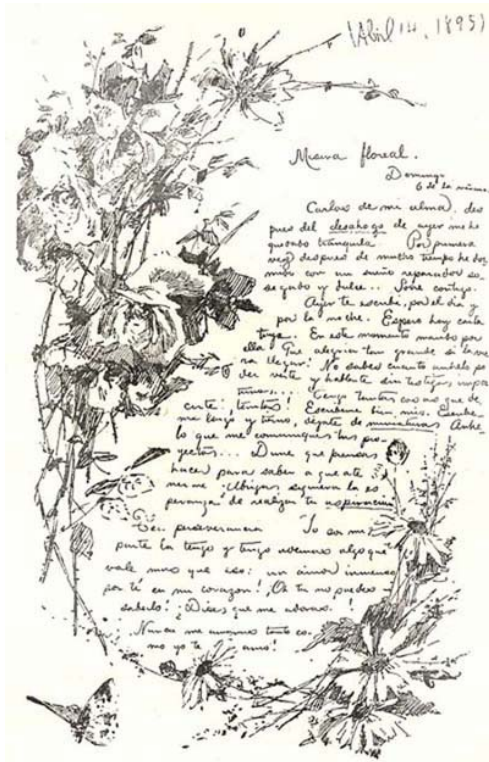 (Abril 14, 1895)
Misiva floreal.
Domingo
6 de la mañana.
Carlos de mi alma: des
pues del desahogo de ayer me he
quedado tranquila. Por primera
vez despues de mucho tiempo he dor
mido con un sueño reparador so
segado y dulce... Soñé contigo.
Ayer te escribí, por el dia y
por la noche. Espero hoy carta
tuya. En este momento mando por
ella. Que alegria tan grande si la vie
ra llegar! No sabes cuanto anhelo po
der verte y hablarte sin testigos impor
tunos.... Tengo tantas cosas que de
cirte, tantas! Escribeme bien mio. Escribe
me largo y tierno, déjate de miniaturas. Anhe
lo que me comuniques tus pro
yectos... Dime que piensas
hacer para saber a que ate
nerme. Abrigas siquiera la es
peranza de realizar tu aspiracion
Ten perseverancia. Yo por mi
parte la tengo y tengo ademas algo que
vale mas que eso: un amor inmenso
por tí en mi corazon! Oh tu no puedes
saberlo! ¿Dices que me adoras?
Nunca me tanto co
mo yo te amo!